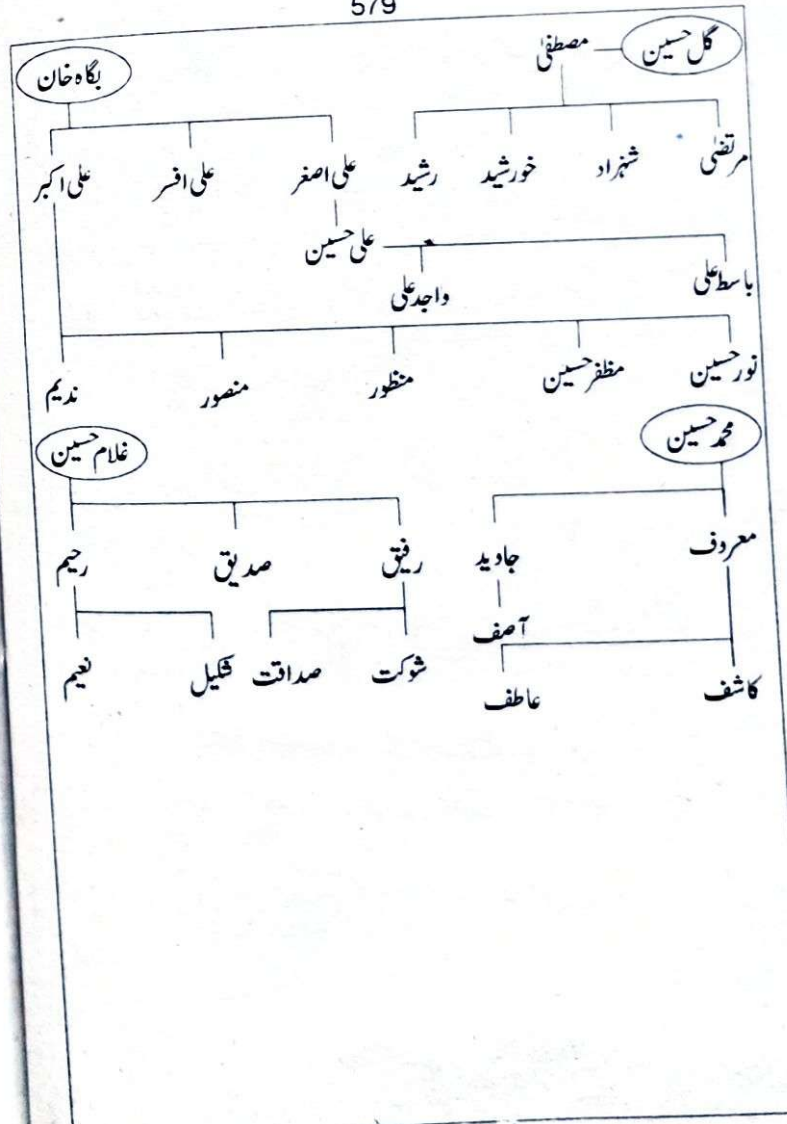 579
گل حسین مصطفیٰ بگاہ خان
مرتضیٰ شہزاد خورشید رشید علی اصغر علی افسر علی اکبر
باسط علی واجد علی علی حسین
نور حسین مظفر حسین منظور منصور ندیم
محمد حسین غلام حسین
معروف جاوید رفیق صدیق رحیم
آصف
کاشف عاطف شوکت صداقت شکیل نعیم